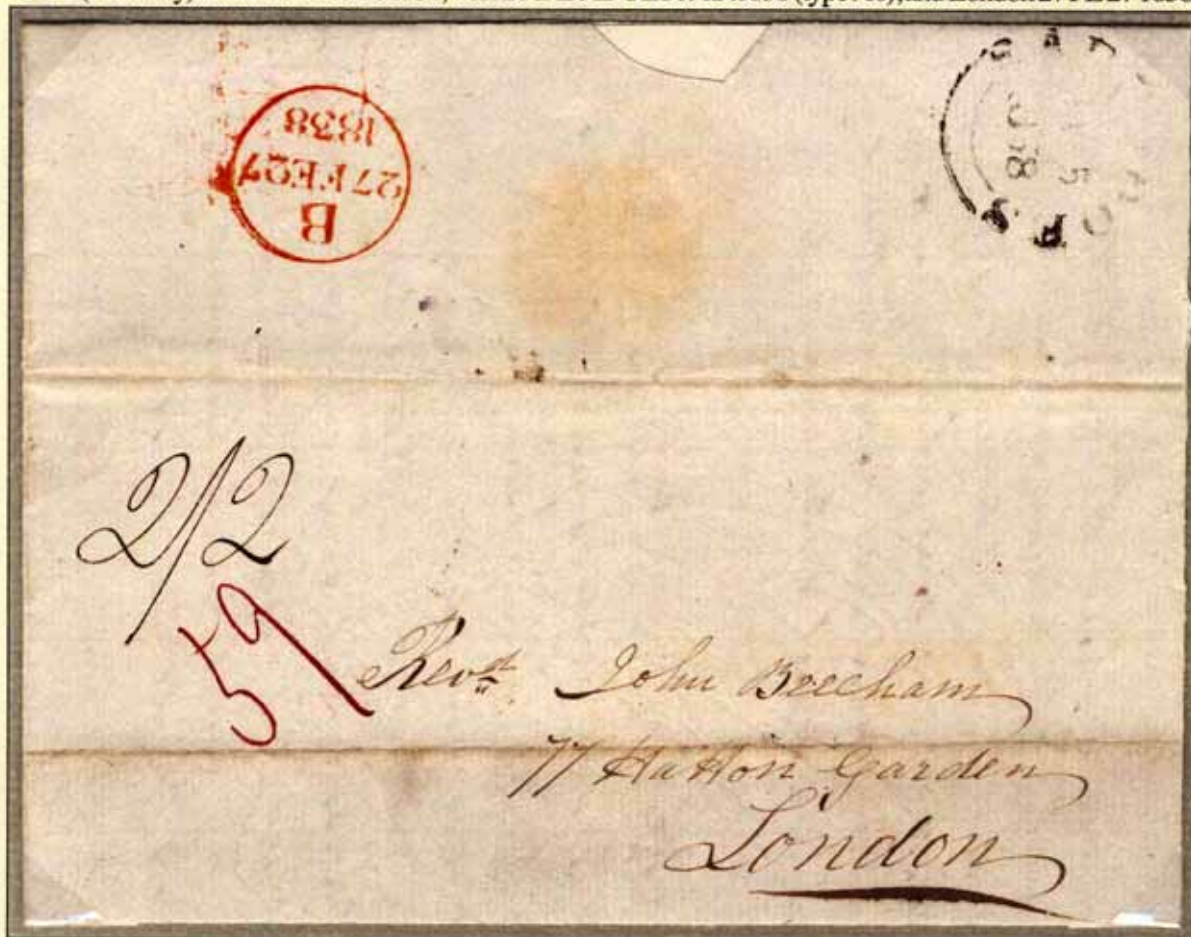 B
27FE27
1838
2/2
59
Revd. John Beecham
77 Hatton Garden
London